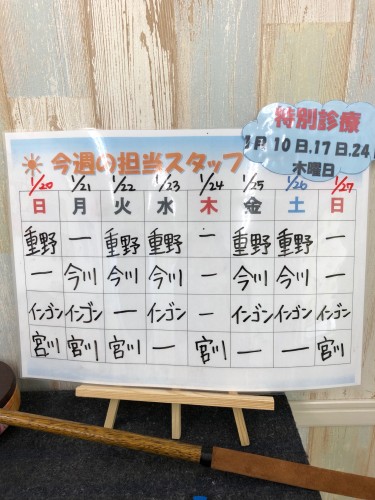 特別診療
1月 10日.17日.24日
木曜日
今週の担当スタッフ
1/20 1/21 1/22 1/23 1/24 1/25 1/26 1/27
日 月 火 水 木 金 土 日
重野 一 重野 重野 一 重野 重野 一
一 今川 今川 今川 一 今川 今川 一
インゴン インゴン 一 インゴン 一 インゴン インゴン インゴン
宮川 宮川 宮川 一 宮川 一 一 宮川